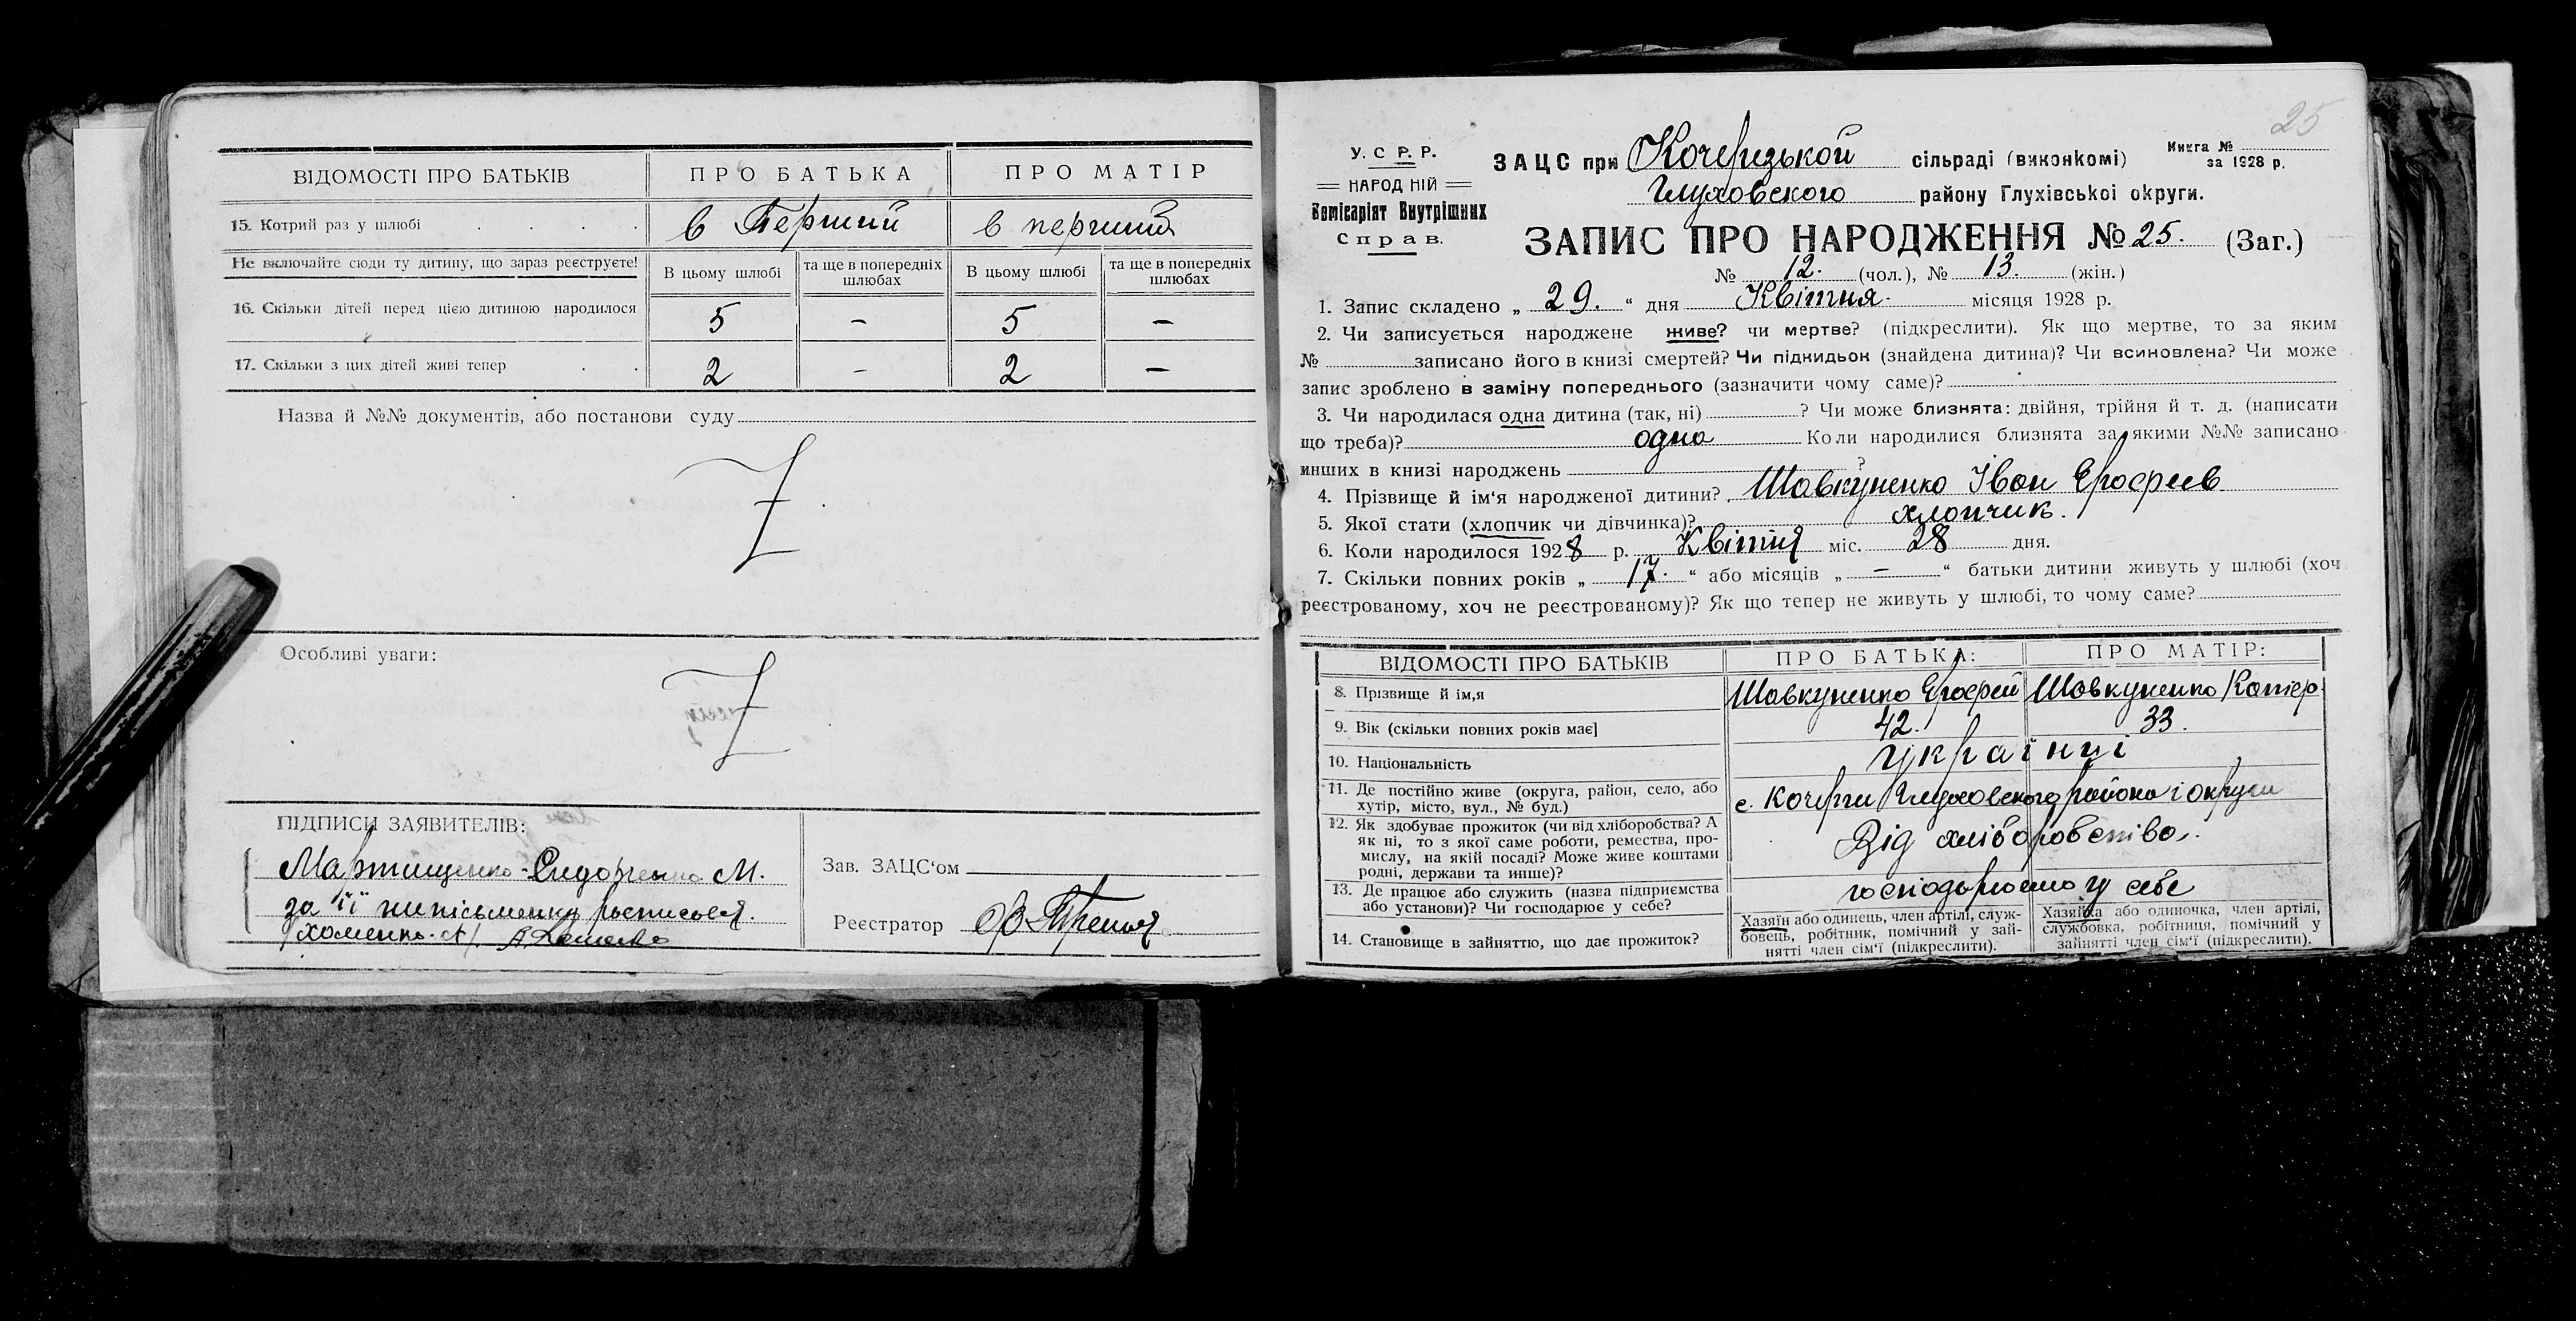 ВІДОМОСТІ ПРО БАТЬКІВ ПРО БАТЬКА ПРО МАТІР
15. Котрий раз у шлюбі в Перший в перший
Не включайте сюди ту дитину, що зараз реєструєте! В цьому шлюбі та ще в попередніх шлюбах В цьому шлюбі та ще в попередніх шлюбах
16. Скільки дітей перед цією дитиною народилося 5 – 5 –
17. Скільки з цих дітей живі тепер 2 – 2 –
Назва й №№ документів, або постанови суду
Особливі уваги:
ПІДПИСИ ЗАЯВИТЕЛІВ:
Мартищенко-Сидоренко М.
за її
Хоменко
Зав. ЗАЦС‘ом
Реєстратор
25
У. С Р. Р.
НАРОДНІЙ
Комісаріят Внутрішних
Справ.
ЗАЦС при Кочергзькой сільраді (виконкомі)
Книга №
за 1928 р.
Глуховского району Глухівської округи.
ЗАПИС ПРО НАРОДЖЕННЯ № 25. (Заг.)
№ 12. (чол.), № 13. (жін.)
1. Запис складено „ 29. “ дня Квітня місяця 1928 р.
2. Чи записується народжене живе? чи мертве? (підкреслити). Як що мертве, то за яким
№ записано його в книзі смертей? Чи підкидьок (знайдена дитина)? Чи всиновлена? Чи може
запис зроблено в заміну попереднього (зазначити чому саме)?
3. Чи народилася одна дитина (так, ні) ? Чи може близнята: двійня, трійня й т. д. (написати
що треба)? одна Коли народилися близнята за якими №№ записано
инших в книзі народжень ?
4. Прізвище й ім‘я народженої дитини? Шавкуненко Іван Ерофеев
5. Якої стати (хлопчик чи дівчинка)? хлопчик.
6. Коли народилося 1928 р. Квітня міс. 28 дня.
7. Скільки повних років „ 17. “ або місяців „ – “ батьки дитини живуть у шлюбі (хоч
реєстрованому, хоч не реєстрованому)? Як що тепер не живуть у шлюбі, то чому саме?
ВІДОМОСТІ ПРО БАТЬКІВ ПРО БАТЬКА: ПРО МАТІР:
8. Прізвище й ім,я Шавкуненко Ерофей Шавкуненко Катер.
9. Вік (скільки повних років має) 42. 33.
10. Національність українці
11. Де постійно живе (округа, район, село, або
хутір, місто, вул., № буд.) с. Кочерги Глуховского района і округи
12. Як здобуває прожиток (чи від хліборобства? А
як ні, то з якої саме роботи, ремества, про-
мислу, на якій посаді? Може живе коштами
родні, держави та инше)? Від хліборобства.
13. Де працює або служить (назва підприємства
або установи)? Чи господарює у себе? господарюємо у себе
14. Становище в зайняттю, що дає прожиток?
Хазяїн або одинець, член артілі, служ-
бовець, робітник, помічний у зай-
нятті член сім‘ї (підкреслити).
Хазяйка або одиночка, член артілі,
службовка, робітниця, помічний у
зайнятті член сім‘ї (підкреслити).